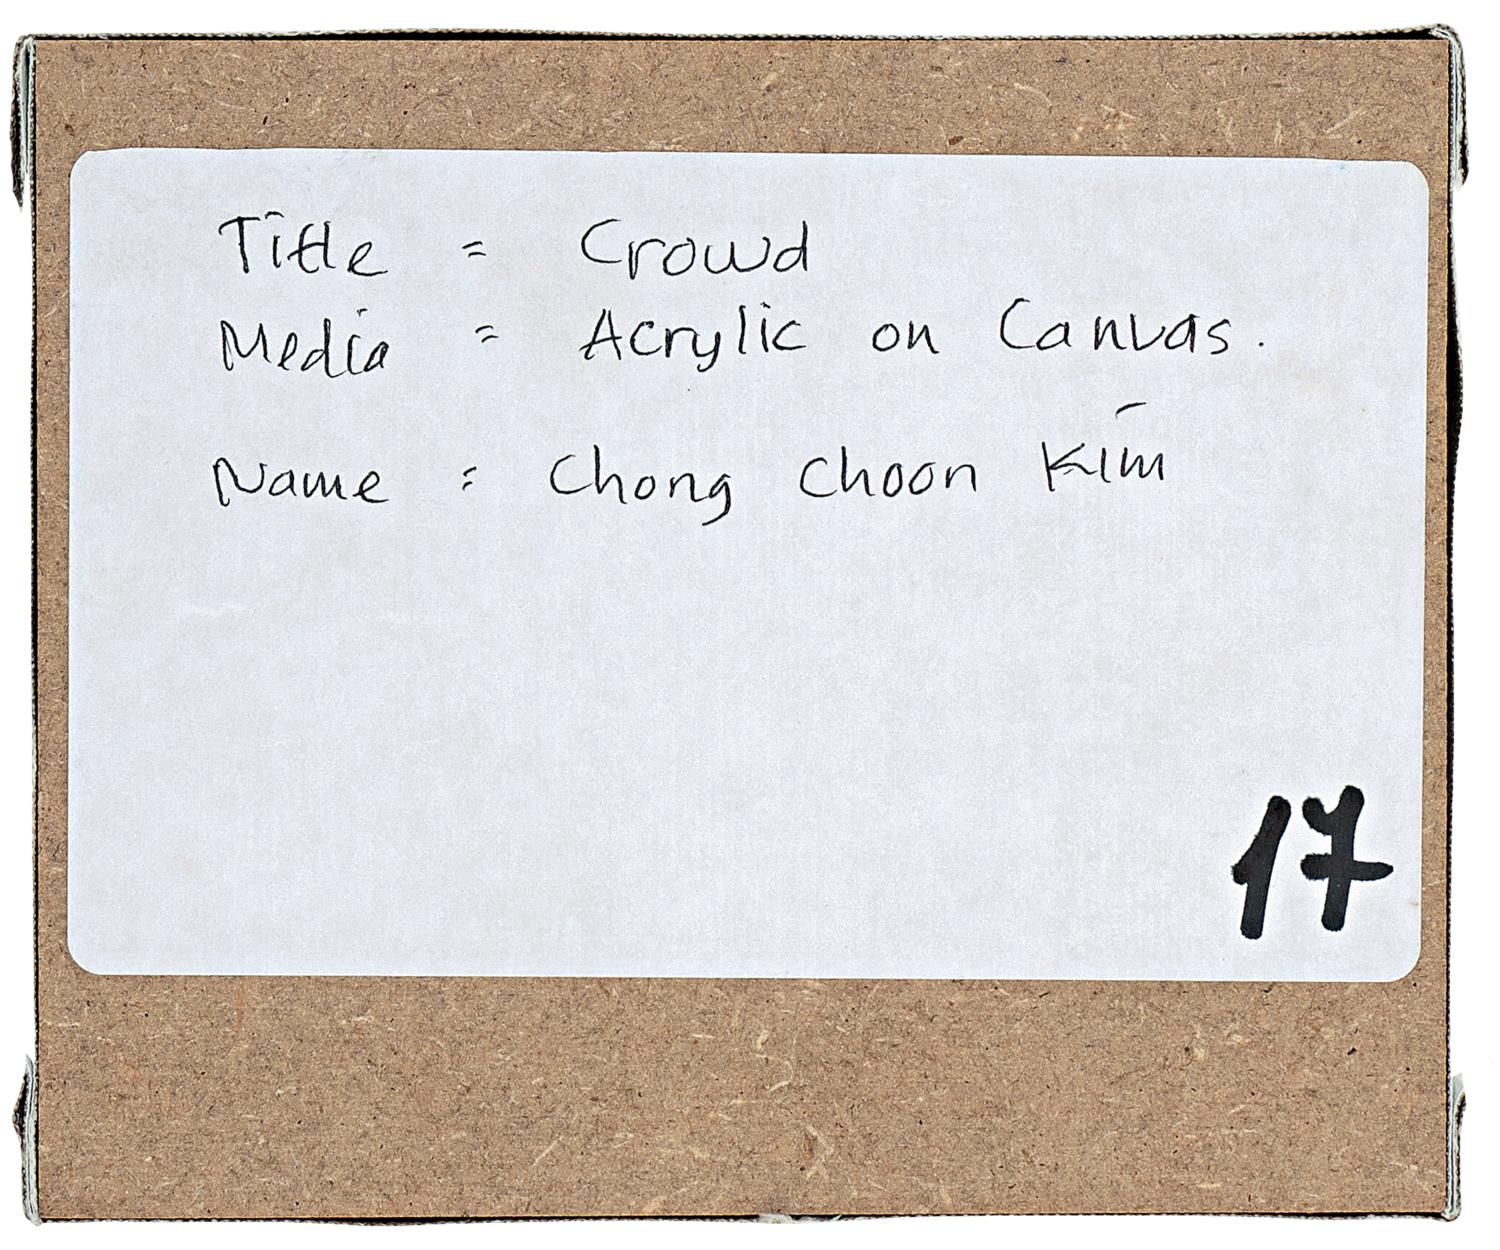 Title = Crowd
Media = Acrylic on Canvas.
Name : Chong Choon Kim
17